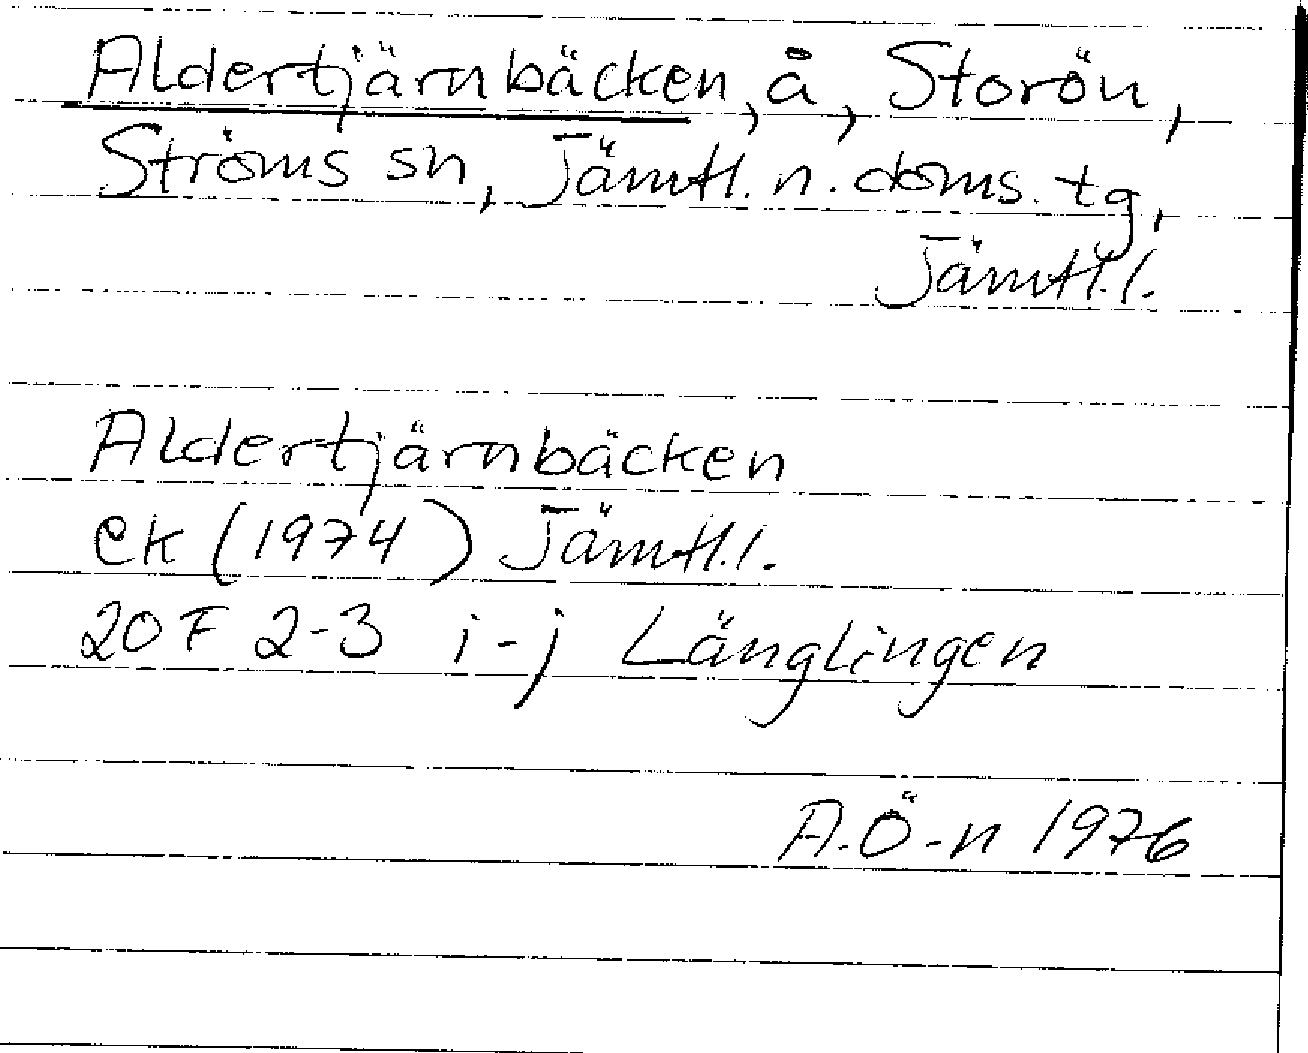 Aldertjärnbäcken, å, Storön,
Ströms sn, Jämtl. n. doms. tg,
Jämtl. l.
Aldertjärnbäcken
ek (1974) Jämtl. l.
20 F 2-3 i-j Länglingen
A.Ö-n 1976